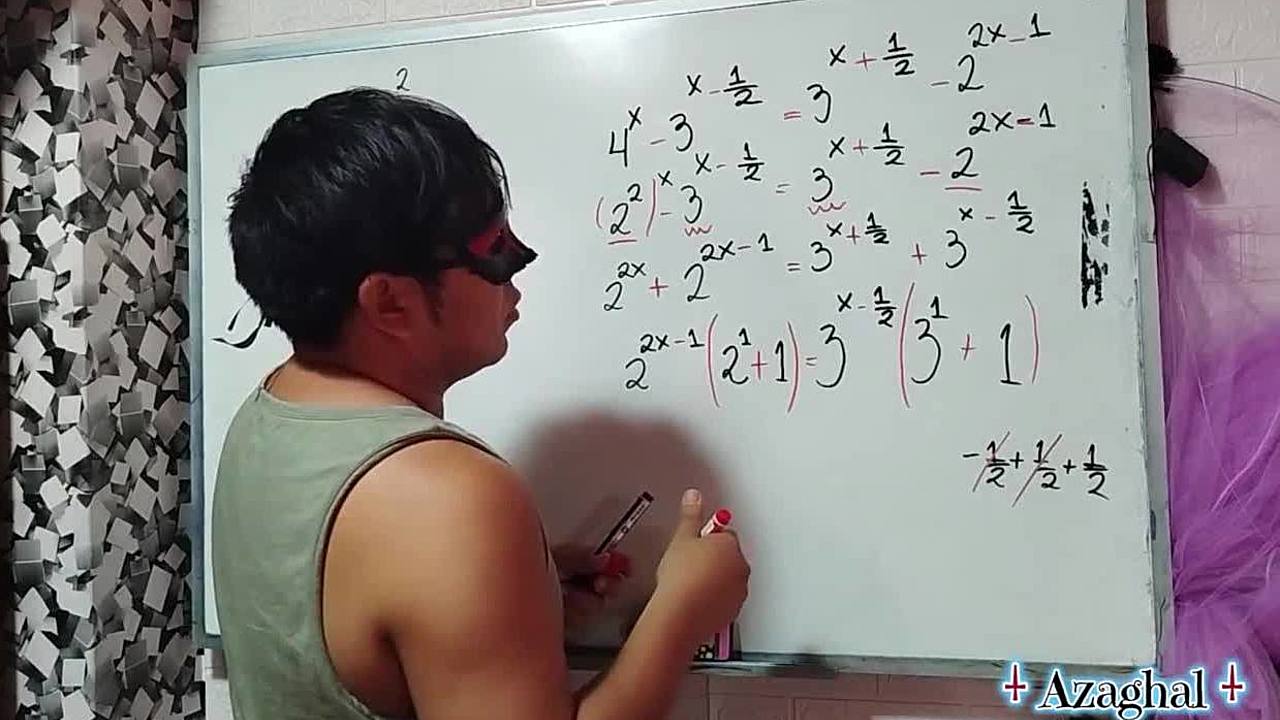 2
4^x - 3^(x - 1/2) = 3^(x + 1/2) - 2^(2x - 1)
(2^2)^x - 3^(x - 1/2) = 3^(x + 1/2) - 2^(2x - 1)
2^(2x) + 2^(2x - 1) = 3^(x + 1/2) + 3^(x - 1/2)
2^(2x - 1) (2^1 + 1) = 3^(x - 1/2) (3^1 + 1)
- 1/2 + 1/2 + 1/2
Azaghal